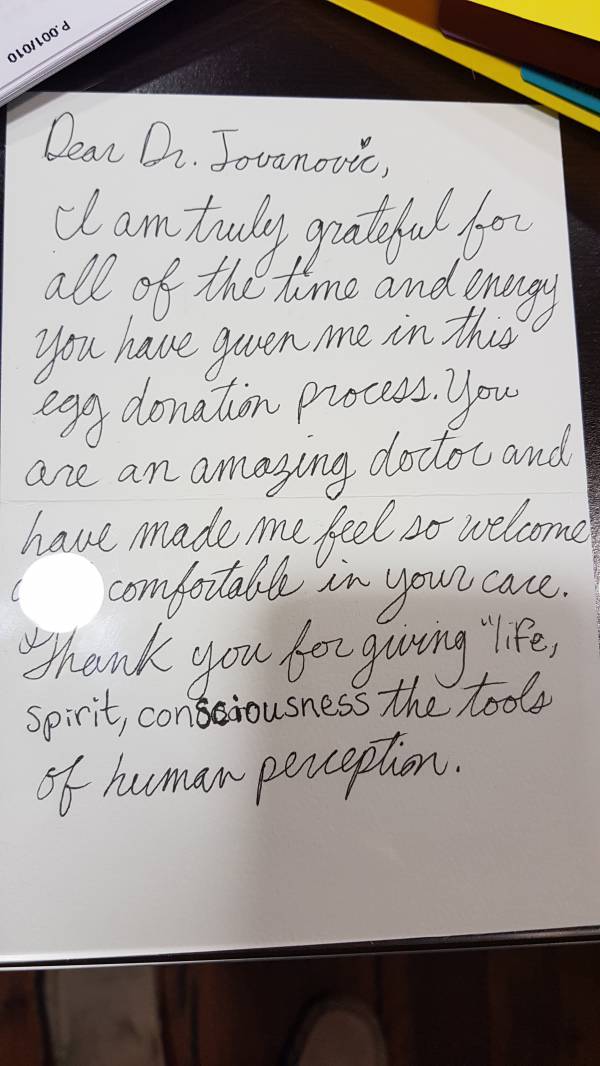 P.001/010
Dear Dr. Jovanovic,
I am truly grateful for
all of the time and energy
you have given me in this
egg donation process. You
are an amazing doctor and
have made me feel so welcome
comfortable in your care.
Thank you for giving "life,
spirit, consciousness the tools
of human perception.